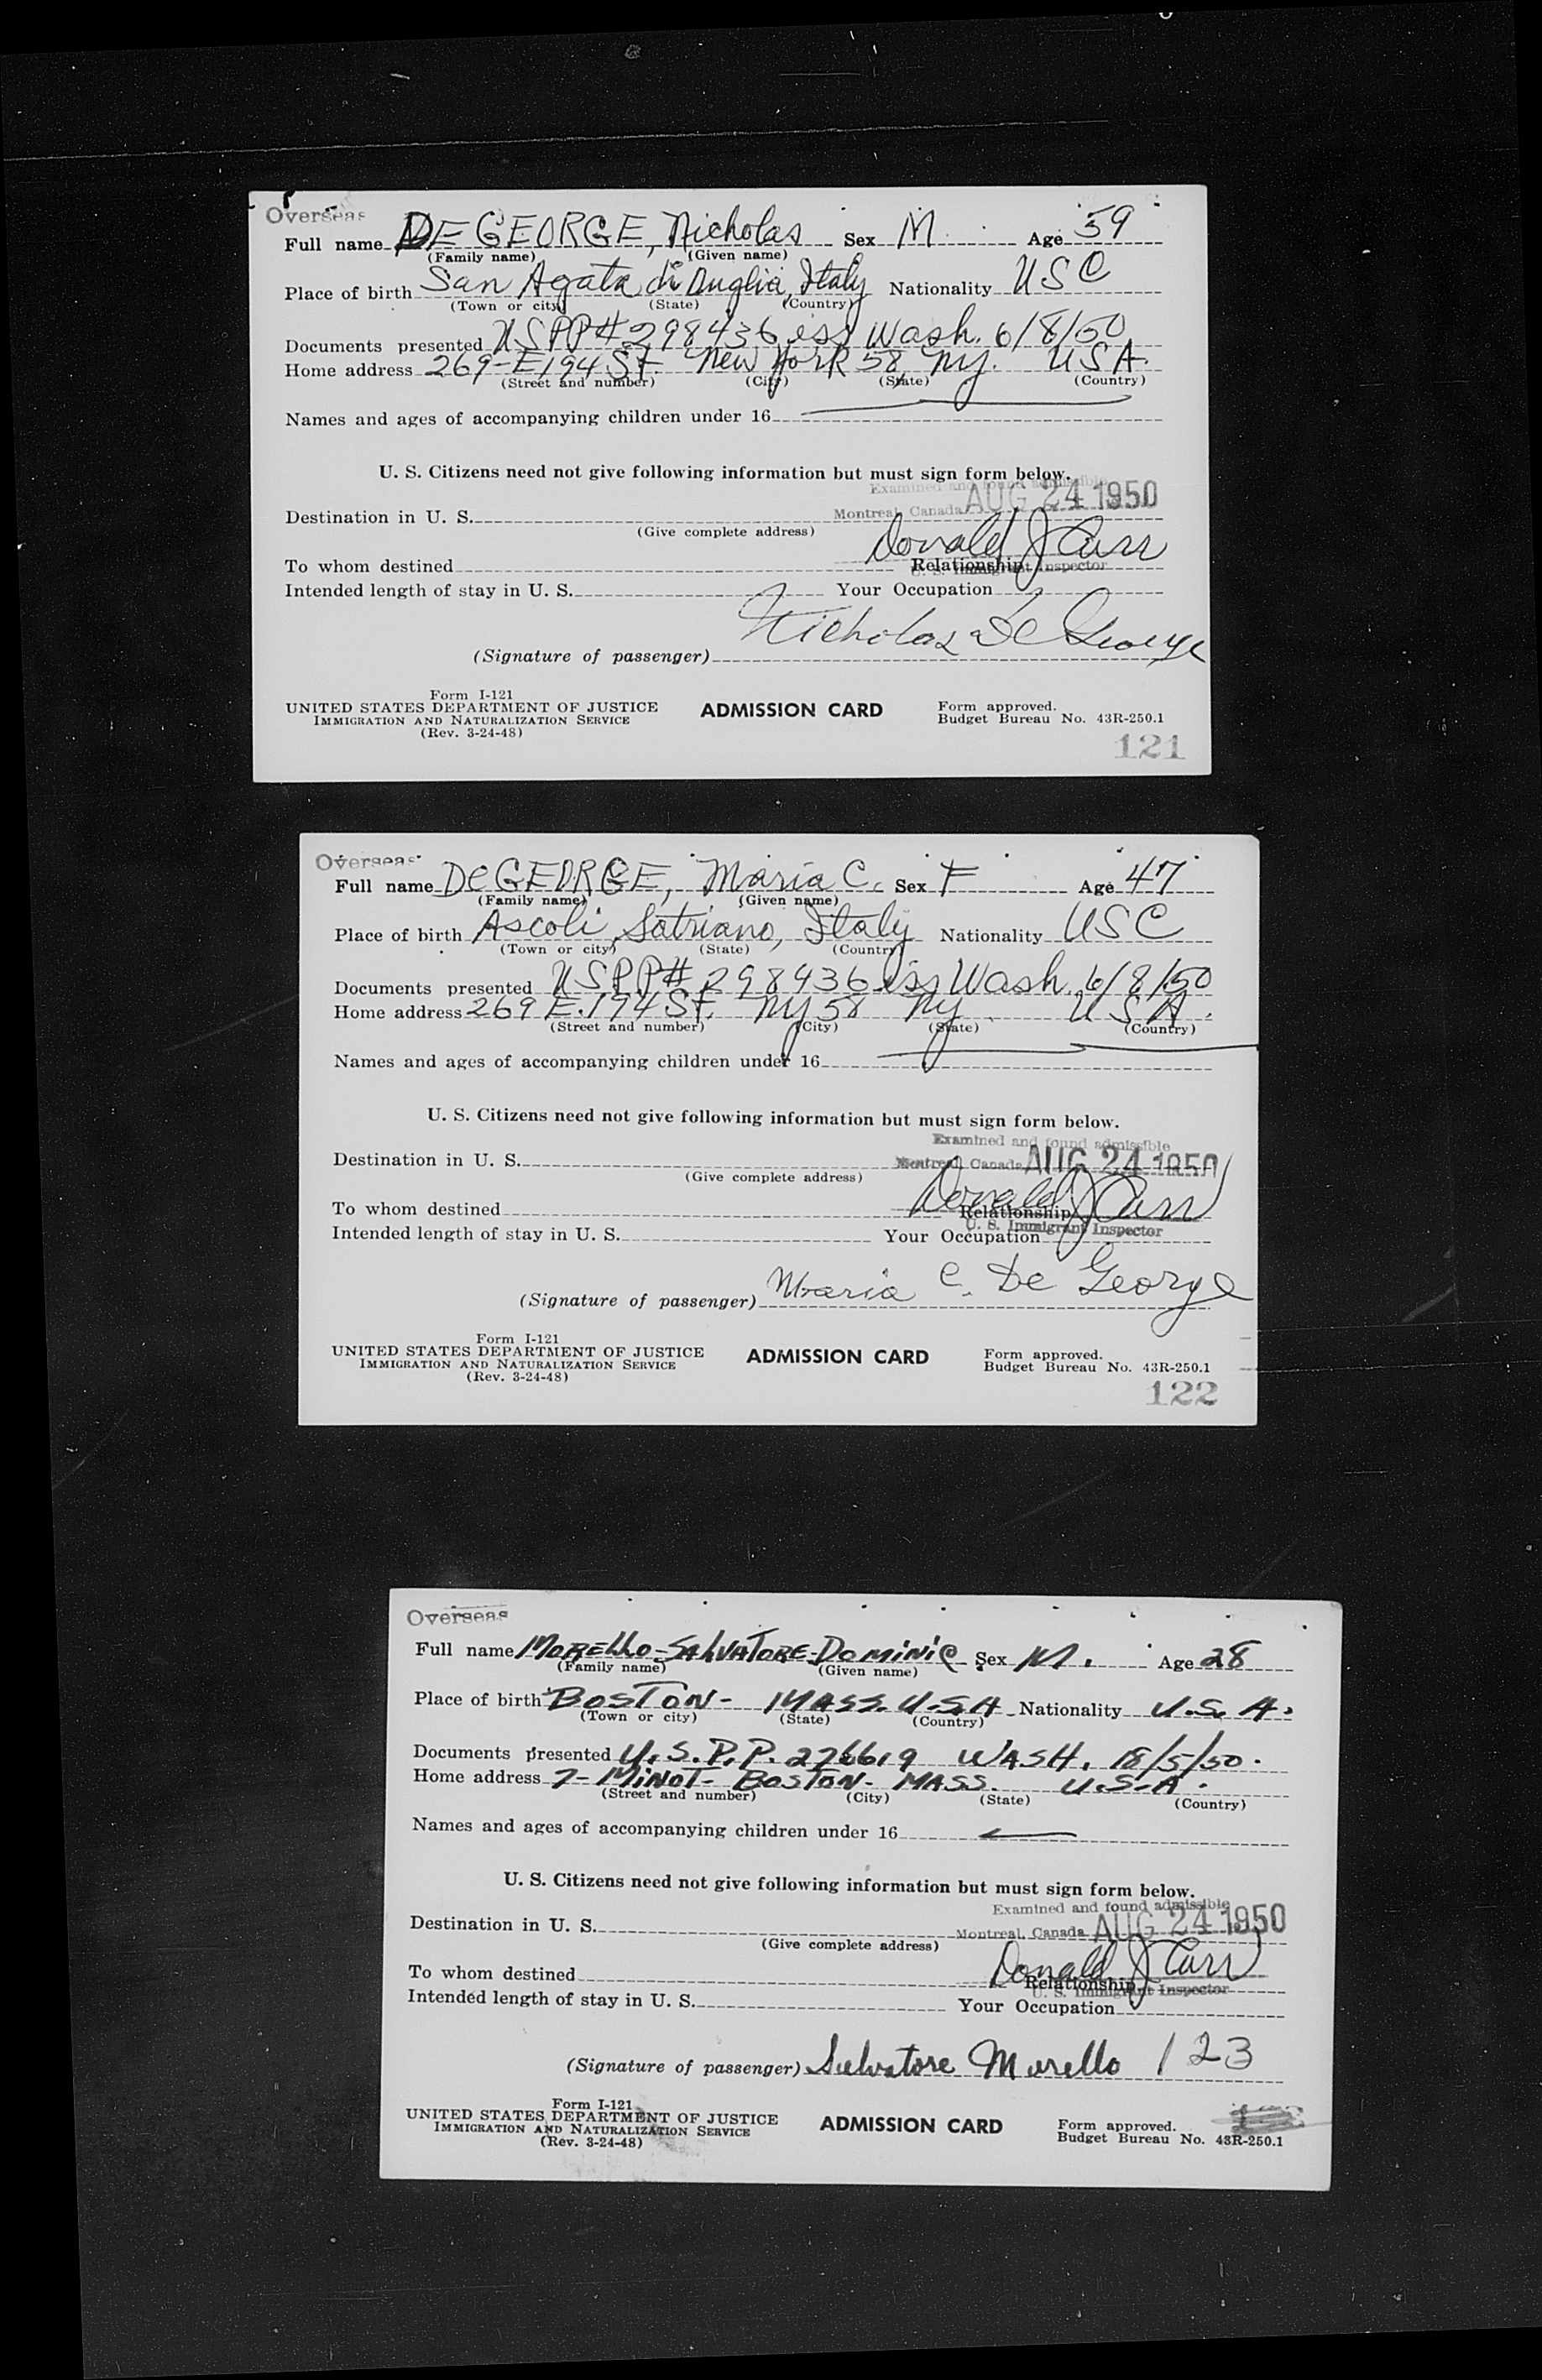 Overseas
Full name DE GEORGE, Nicholas Sex M Age 59
(Family name) (Given name)
Place of birth San Agata di Puglia, Italy Nationality USC
(Town or city) (State) (Country)
Documents presented USPP# 298436 iss Wash. 6/8/50
Home address 269-E194 St. New York 58, NY. USA.
(Street and number) (City) (State) (Country)
Names and ages of accompanying children under 16
U. S. Citizens need not give following information but must sign form below.
Examined and found admissible
Destination in U. S. Montreal, Canada AUG 24 1950
(Give complete address)
Donald J Carr
To whom destined Relationship
U. S. Immigrant Inspector
Intended length of stay in U. S. Your Occupation
(Signature of passenger) Nicholas De George
Form I-121
UNITED STATES DEPARTMENT OF JUSTICE ADMISSION CARD Form approved.
IMMIGRATION AND NATURALIZATION SERVICE Budget Bureau No. 43R-250.1
(Rev. 3-24-48)
121
Overseas
Full name DeGEORGE, Maria C. Sex F Age 47
(Family name) (Given name)
Place of birth Ascoli, Satriano, Italy Nationality USC
(Town or city) (State) (Country)
Documents presented USPP# 298436 iss Wash. 6/8/50
Home address 269 E. 194 St. NY 58 NY USA.
(Street and number) (City) (State) (Country)
Names and ages of accompanying children under 16
U. S. Citizens need not give following information but must sign form below.
Examined and found admissible
Destination in U. S. Montreal, Canada AUG 24 1950
(Give complete address)
Donald J Carr
To whom destined Relationship
U. S. Immigrant Inspector
Intended length of stay in U. S. Your Occupation
(Signature of passenger) Maria C. De George
Form I-121
UNITED STATES DEPARTMENT OF JUSTICE ADMISSION CARD Form approved.
IMMIGRATION AND NATURALIZATION SERVICE Budget Bureau No. 43R-250.1
(Rev. 3-24-48)
122
Overseas
Full name MORELLO-SALVATORE-DOMINIC Sex M. Age 28
(Family name) (Given name)
Place of birth BOSTON- MASS. U.S.A Nationality U.S.A.
(Town or city) (State) (Country)
Documents presented U.S.P.P. WASH.
Home address 7-MINOT- BOSTON- MASS. U.S.A.
(Street and number) (City) (State) (Country)
Names and ages of accompanying children under 16
U. S. Citizens need not give following information but must sign form below.
Examined and found admissible
Destination in U. S. Montreal, Canada AUG 24 1950
(Give complete address)
Donald J Carr
To whom destined Relationship
U. S. Immigrant Inspector
Intended length of stay in U. S. Your Occupation
(Signature of passenger) Salvatore Morello 123
Form I-121
UNITED STATES DEPARTMENT OF JUSTICE ADMISSION CARD Form approved.
IMMIGRATION AND NATURALIZATION SERVICE Budget Bureau No. 43R-250.1
(Rev. 3-24-48)